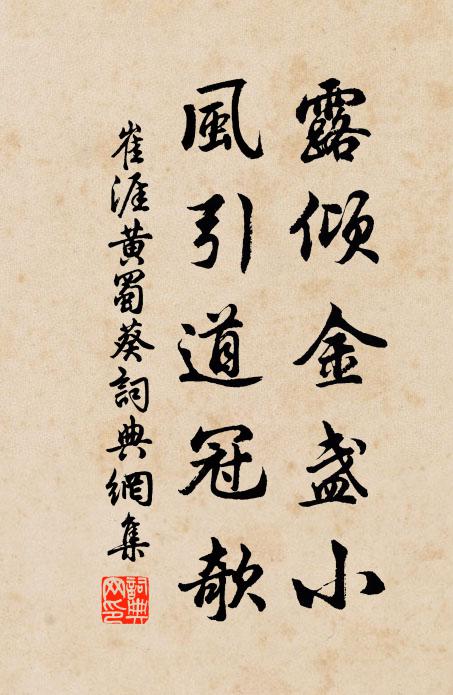 露傾金盏小
風引道冠欹
崔涯黃蜀葵詞典網集
詞典網印